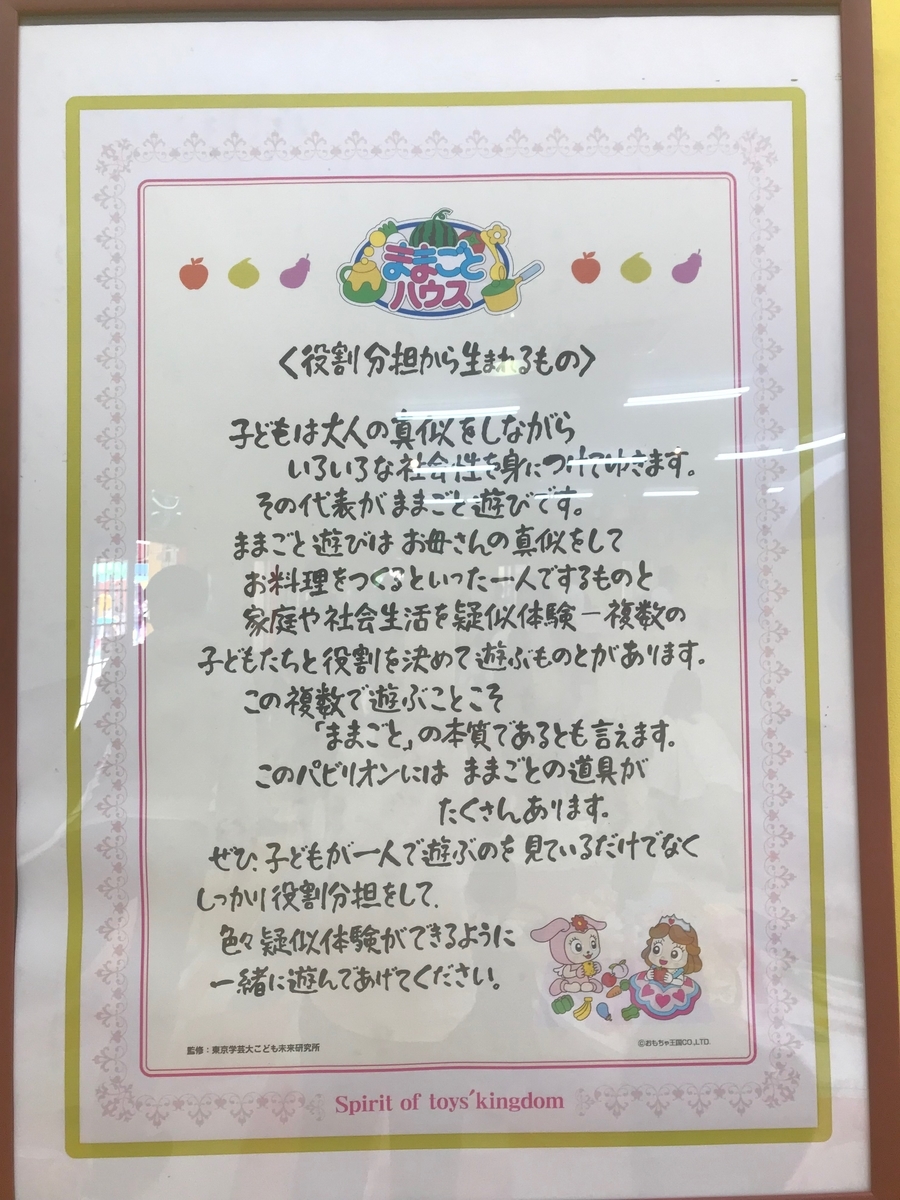 ままごと
ハウス
〈役割分担から生まれるもの〉
子どもは大人の真似をしながら
いろいろな社会性を身につけてゆきます。
その代表がままごと遊びです。
ままごと遊びは お母さんの真似をして
お料理をつくるといった一人でするものと
家庭や社会生活を疑似体験－複数の
子どもたちと役割を決めて遊ぶものとがあります。
この複数で遊ぶことこそ
「ままごと」の本質であるとも言えます。
このパビリオンには ままごとの道具が
たくさんあります。
ぜひ、子どもが一人で遊ぶのを見ているだけでなく
しっかり役割分担をして、
色々疑似体験ができるように
一緒に遊んであげてください。
監修：東京学芸大こども未来研究所
©おもちゃ王国CO.,LTD.
Spirit of toys'kingdom